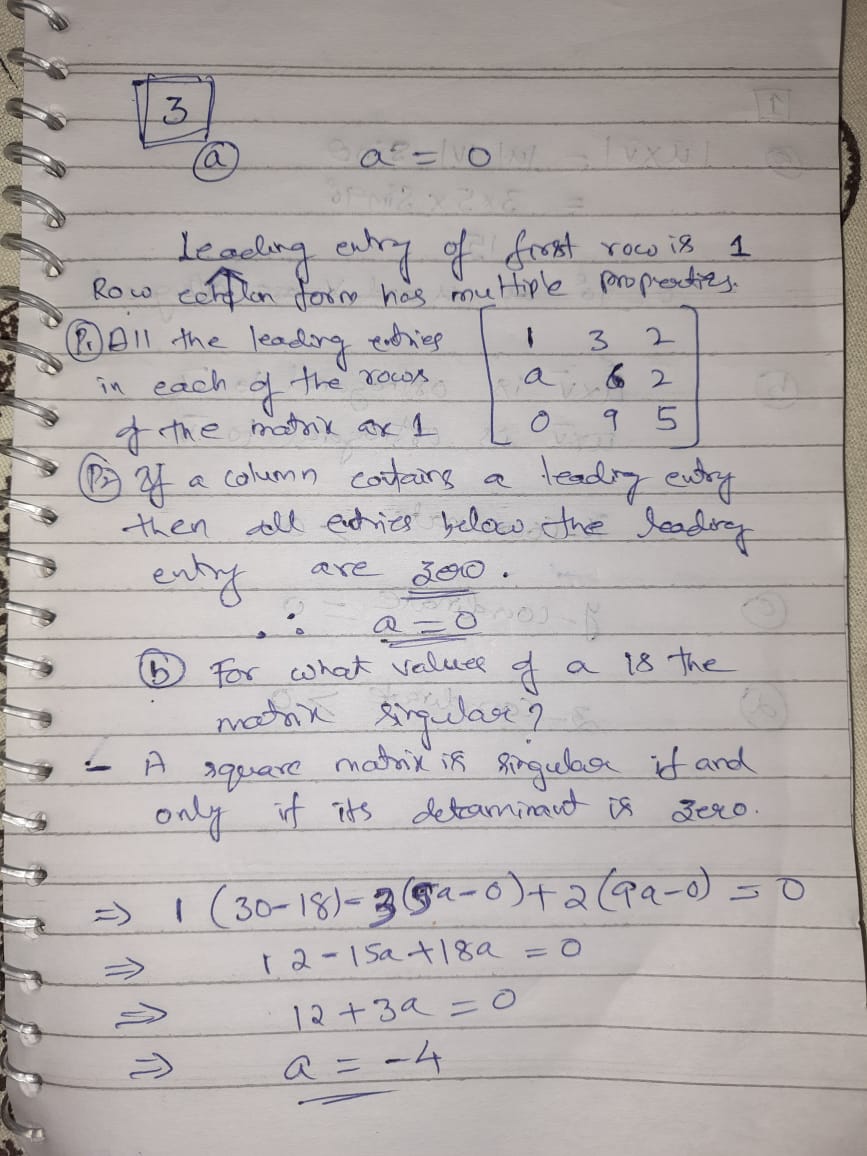 3
(a) a = 0
Leading entry of first row is 1
Row echelon form has multiple properties.
(P1) All the leading entries
in each of the rows
of the matrix are 1
1 3 2
a 6 2
0 9 5
(P2) If a column contains a leading entry
then all entries below the leading
entry are zero.
∴ a = 0
(b) For what values of a is the
matrix singular?
- A square matrix is singular if and
only if its determinant is zero.
⇒ 1 (30-18)-3(5a-0)+2(9a-0) = 0
⇒ 12-15a+18a = 0
⇒ 12+3a = 0
⇒ a = -4